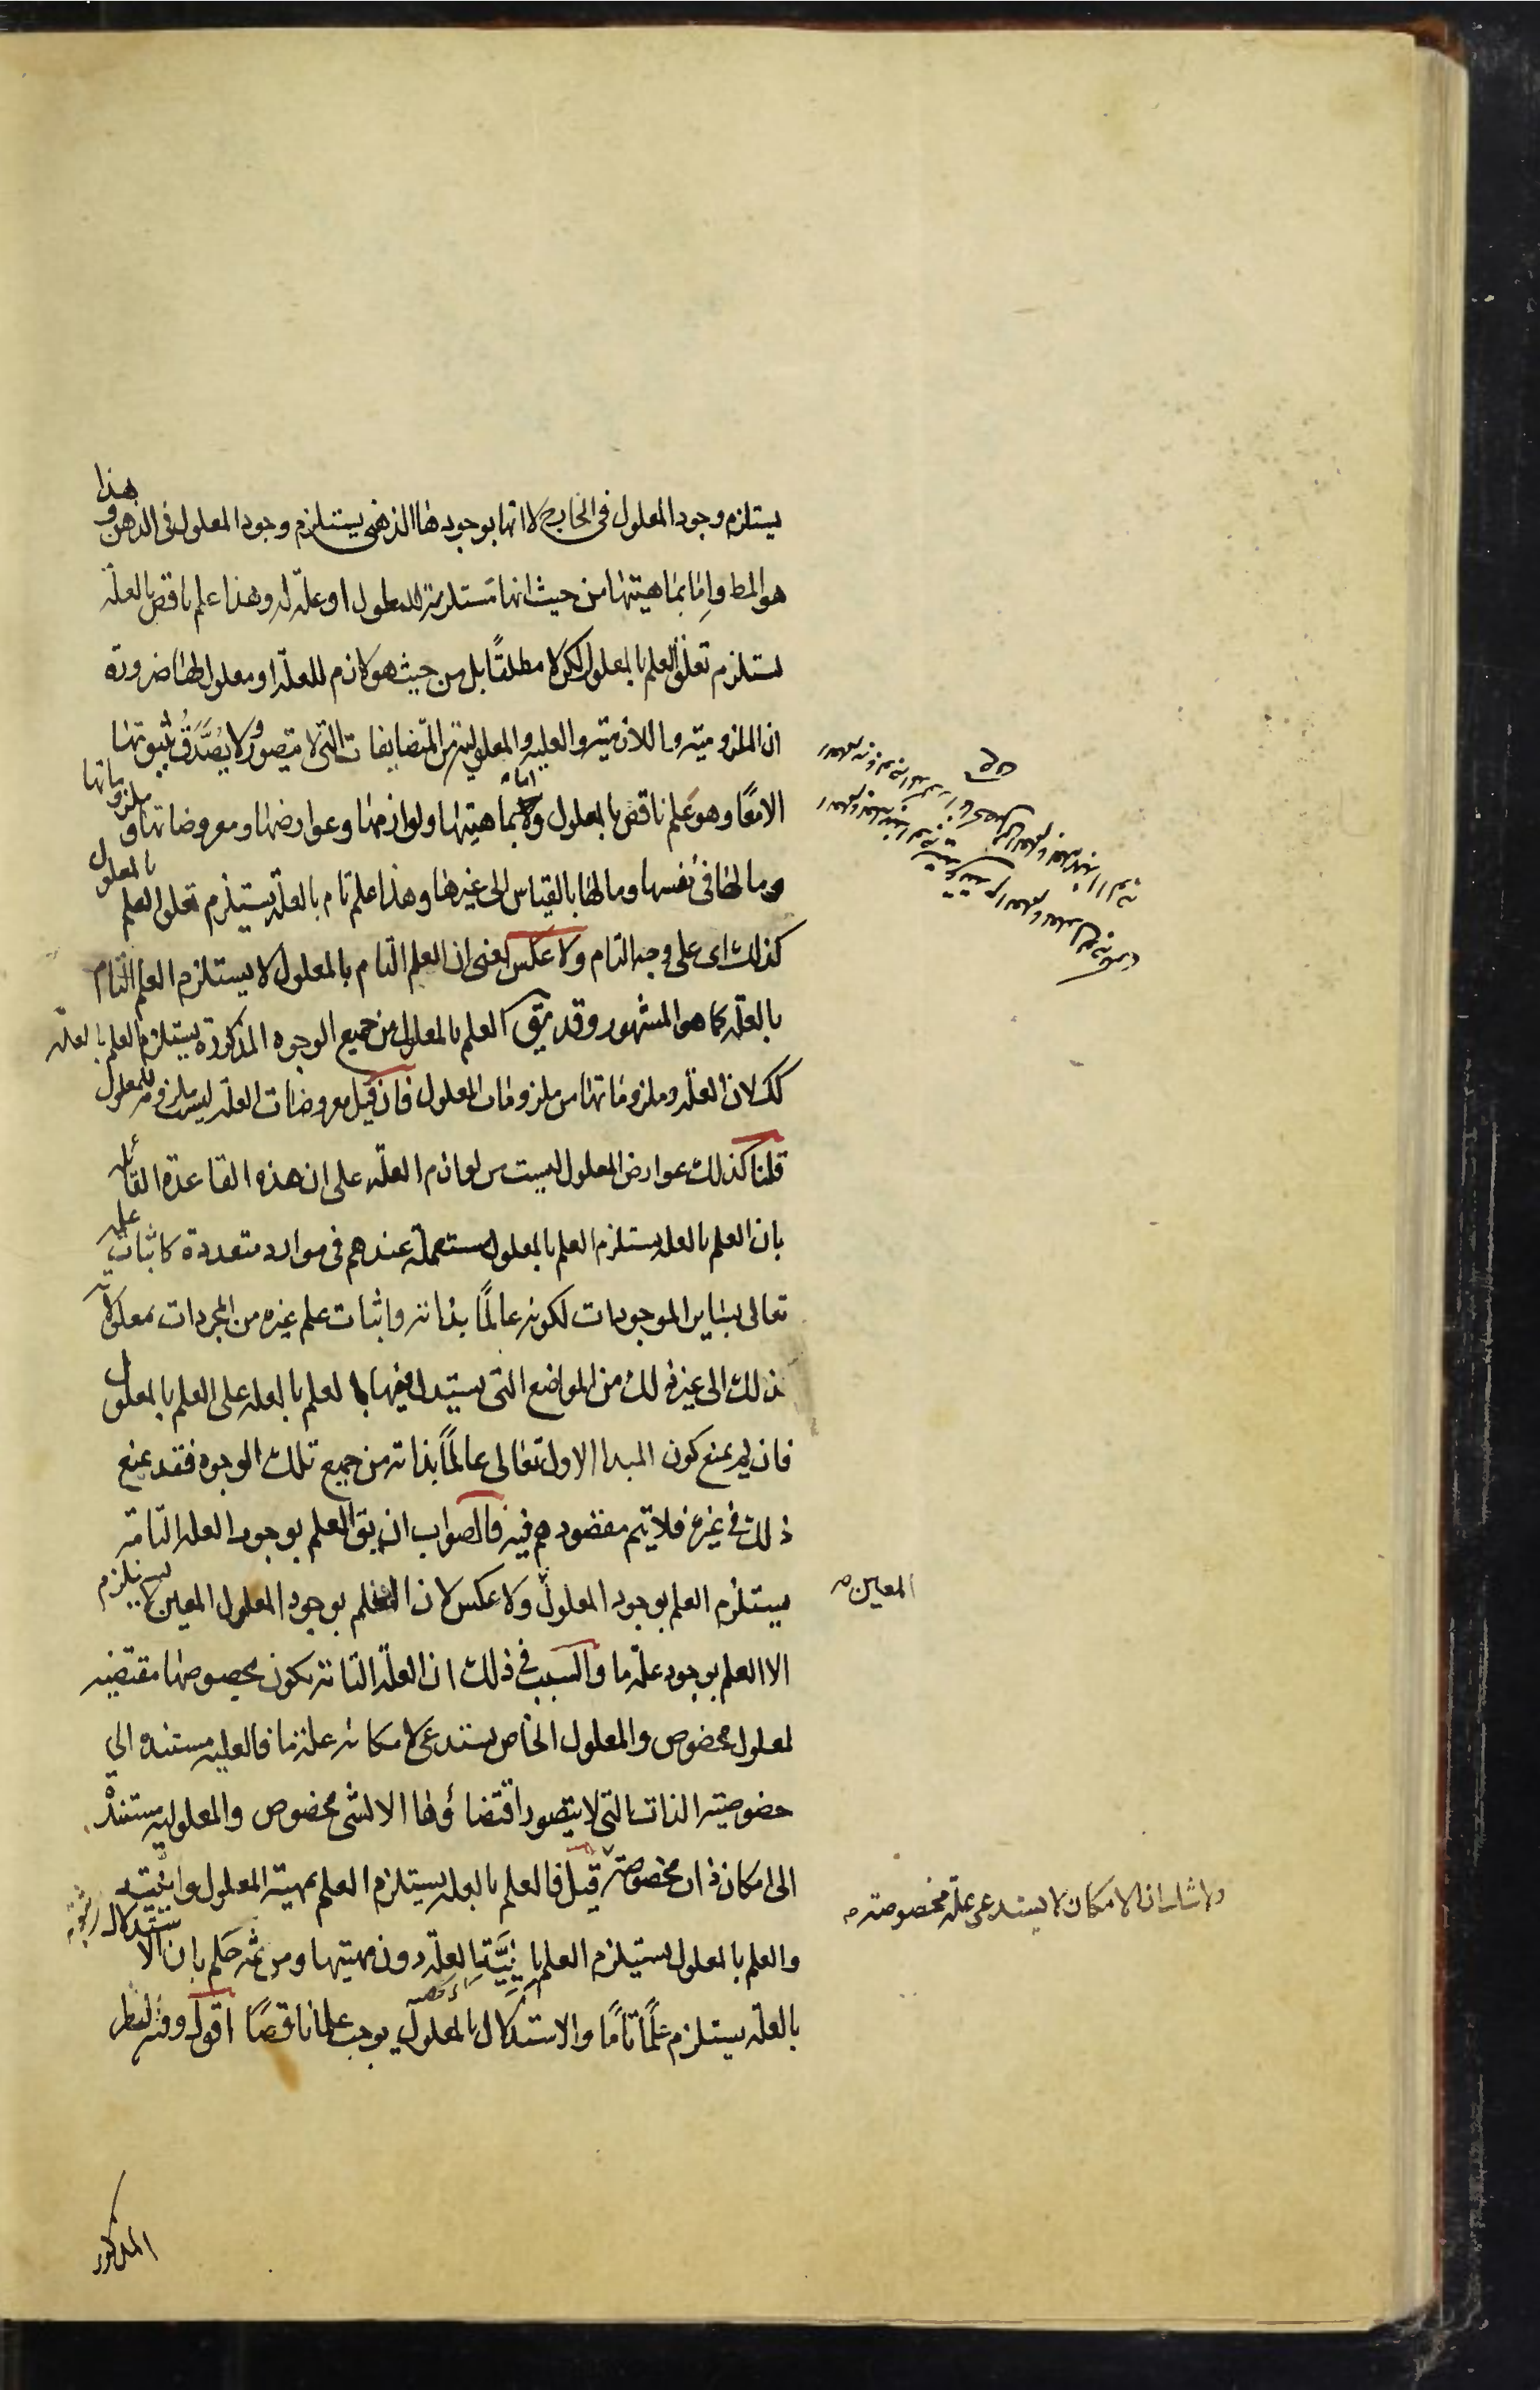 يستلزم وجود المعلول فى الخارج لا انها بوجودها الذهنى يستلزم وجود المعلول فى الذهن وهذا
هو المط واما بماهيتها من حيث انها مستلزمة للمعلول او علة له وهذا علم ناقص بالعلة
يستلزم تعلق العلم بالمعلول لكن لا مطلقًا بل من حيث هو لازم للعلة او معلول لها ضرورة
ان الملزومية واللازمية والعلية والمعلولية من المتضايفات التى لا يتصور ولا يُصَدَّقُ ثبوتها
الا معًا وهو علم ناقص بالمعلول واما بماهيتها ولوازمها وعوارضها ومعروضاتها وملزوماتها
وما لها فى نفسها وما لها بالقياس الى غيرها وهذا علم تام بالعلة يستلزم تعلق العلم بالمعلول
كذلك اى على وجه التام ولا عكس يعنى ان العلم التام بالمعلول لا يستلزم العلم التام
بالعلة كما هو المشهور وقد يق العلم بالمعلول من جميع الوجوه المذكورة يستلزم العلم بالعلة
كك لان العلة وملزوماتها من ملزومات المعلول فان قيل معروضات العلة ليست ملزومة للمعلول
قلنا كذلك عوارض المعلول ليست من لوازم العلة على ان هذه القاعدة القائلة
بان العلم بالعلة يستلزم العلم بالمعلول مستعملة عندهم فى موارد متعددة كاثبات علمه
تعالى بساير الموجودات لكونه عالمًا بذاته واثبات علم غيره من المجردات بمعلولاته
بذلك الى غير ذلك من المواضع التى يستدل فيها بالعلم بالعلة على العلم بالمعلول
فان لم يمنع كون المبدا الاول تعالى عالمًا بذاته من جميع تلك الوجوه فقد يمنع
ذلك فى غيره فلا يتم مقصودهم فيه فالصواب ان يق العلم بوجود العلة التامة
يستلزم العلم بوجود المعلول ولا عكس لان العلم بوجود المعلول المعين لا يستلزم
المعين صح
الا العلم بوجود علة ما والسبب فى ذلك ان العلة التامة يكون بخصوصها مقتضية
لمعلول مخصوص والمعلول الخاص يستدعى لامكانه علة ما فالعلية مستندة الى
خصوصية الذات التى لا يتصور اقتضاؤها الا لشى مخصوص والمعلولية مستندة
الى امكان ذات مخصوصة قيل فالعلم بالعلة يستلزم العلم بمهية المعلول وانيته
ولا شك ان الامكان لا يستدعى علة مخصوصة صح
والعلم بالمعلول يستلزم العلم بِاِنِّيَّةِ العلة دون مهيتها ومن ثمه حكم بان الاستدلال
بالعلة يستلزم علمًا تامًا والاستدلال بالمعلول يوجب علما ناقصًا اقول وفيه نظر
المذكور